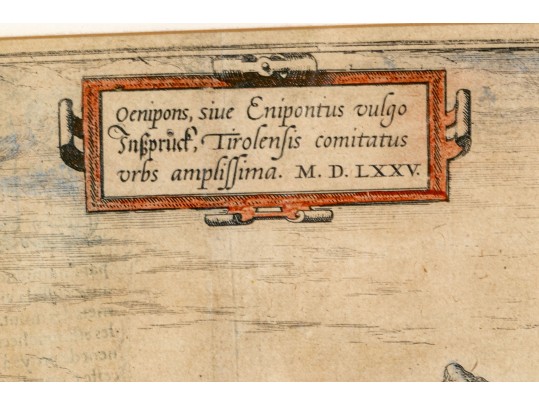 Oenipons, siue Enipontus vulgo
Inßprůck, Tirolensis comitatus
vrbs amplissima. M. D. LXXV.